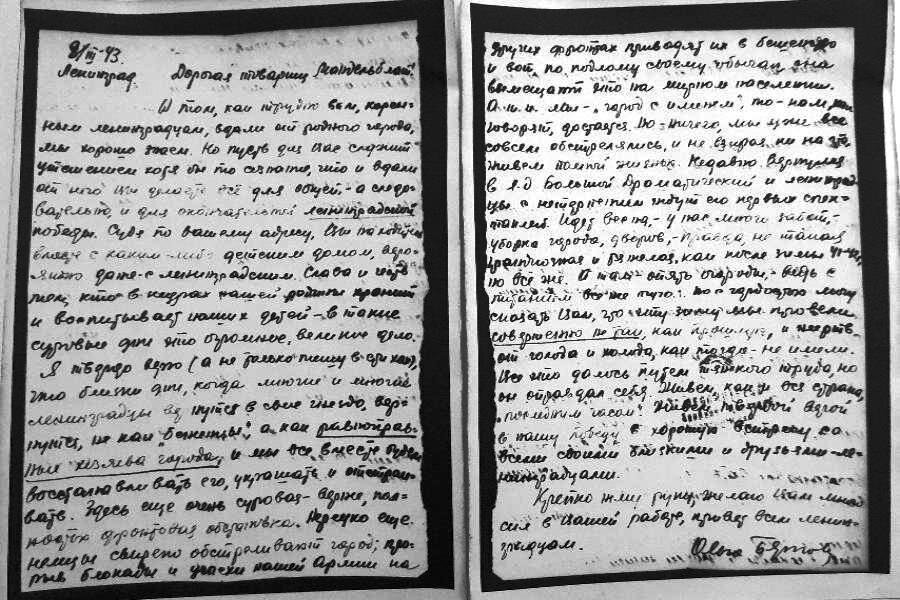 8/III-43.
Ленинград. Дорогая товарищ Мандельблат!
О том, как трудно вам, корен-
ным ленинградцам, вдали от родного города,
мы хорошо знаем. Но пусть для Вас служит
утешением хотя бы то сознание, что и вдали
от него Вы делаете всё для общей, а следо-
вательно, и для окончательной ленинградской
победы. Судя по вашему адресу, Вы находитесь
вместе с каким-либо детским домом, веро-
ятно даже с ленинградским. Слава и честь
тем, кто в недрах нашей родины хранит
и воспитывает наших детей - в такие
суровые дни это огромное, великое дело.
Я твердо верю (а не только пишу в стихах),
что близки дни, когда многие и многие
ленинградцы вернутся в свое гнездо, вер-
нутся, не как беженцы, а как равноправ-
ные хозяева города, и мы все вместе будем
восстанавливать его, украшать и отстраи-
вать. Здесь еще очень суровая - верно, пол-
ностью фронтовая обстановка. Нередко еще
немцы свирепо обстреливают город; про-
рыв блокады и успехи нашей Армии на
других фронтах приводят их в бешенство
и вот, по подлому своему обычаю, они
вымещают это на мирном населении.
А т.к. мы - город с именем, то - нам, как
говорят, достается. Но - ничего, мы уже все
совсем обстрелялись, и не взирая ни на что
живем полной жизнью. Недавно вернулся
в Л-д Большой Драматический и ленинград-
цы с нетерпением ждут его первых спек-
таклей. Идет весна, - у нас много забот, -
уборка города, дворов, - правда, не такая
трагичная и тяжелая, как после зимы 41-42,
но всё же. И там опять огороды, - ведь с
питанием все же туго. Но с гордостью могу
сказать Вам, что эту зиму мы провели
совершенно не так, как прошлую, и жертв
от голода и холода, как тогда - не имели.
Все это далось путем тяжкого труда, но
он оправдал себя. Живем, как и вся страна,
"последним часом". Живем твердой верой
в нашу победу и хорошую встречу со
всеми своими близкими и друзьями-ле-
нинградцами.
Крепко жму руку, желаю Вам много
сил в Вашей работе, привет всем ленин-
градцам.
Ольга Берггольц